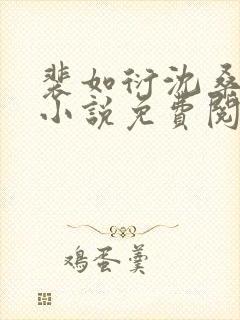 裴如衍沈桑
小説免費閱
鸡蛋羹